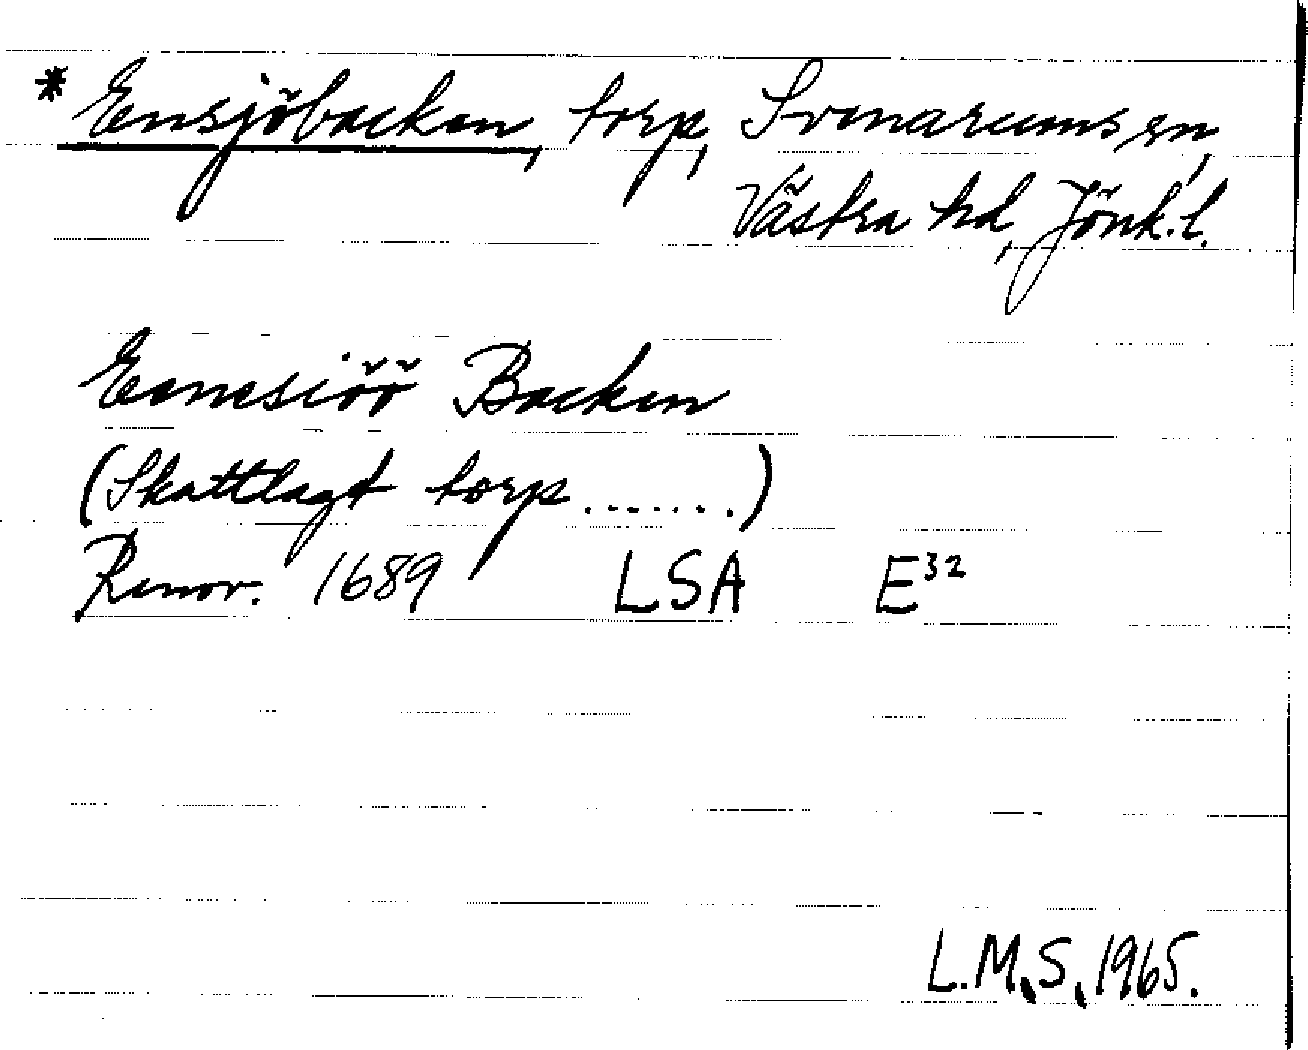 * Ensjöbacken, torp, Svenarums sn,
Västra hd, Jönk.l.
Eenesiöö Backen
(Skattlagt torp.......)
Renov. 1689 LSA E32
L.M.S. 1965.